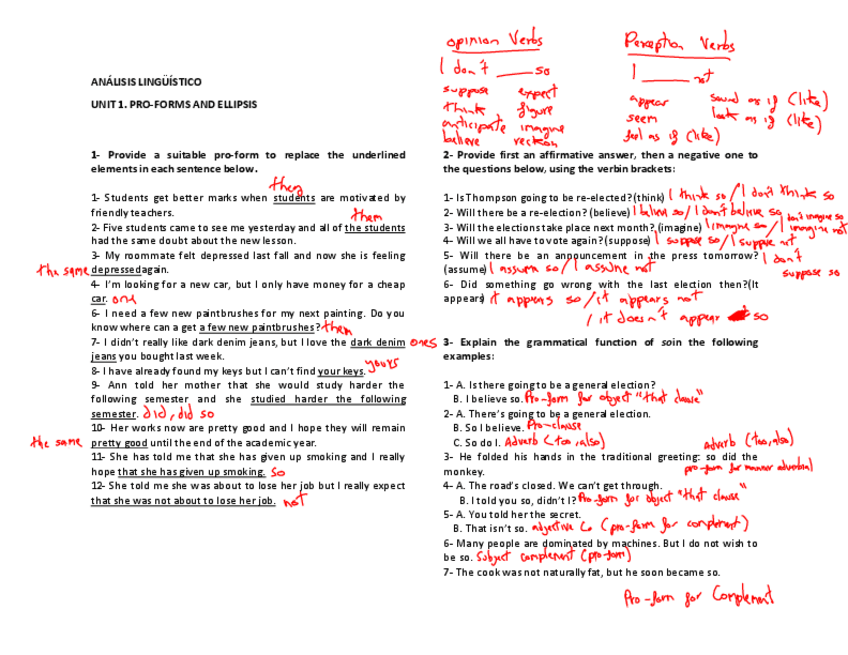 ANÁLISIS LINGÜÍSTICO
UNIT 1. PRO-FORMS AND ELLIPSIS
1- Provide a suitable pro-form to replace the underlined
elements in each sentence below.
they
1- Students get better marks when students are motivated by
friendly teachers.
them
2- Five students came to see me yesterday and all of the students
had the same doubt about the new lesson.
3- My roommate felt depressed last fall and now she is feeling
the same depressedagain.
4- I'm looking for a new car, but I only have money for a cheap
car. one
6- I need a few new paintbrushes for my next painting. Do you
know where can a get a few new paintbrushes? them
7- I didn't really like dark denim jeans, but I love the dark denim ones
jeans you bought last week.
8- I have already found my keys but I can't find your keys. yours
9- Ann told her mother that she would study harder the
following semester and she studied harder the following
semester. did, did so
10- Her works now are pretty good and I hope they will remain
the same pretty good until the end of the academic year.
11- She has told me that she has given up smoking and I really
hope that she has given up smoking. so
12- She told me she was about to lose her job but I really expect
that she was not about to lose her job. not
opinion Verbs
I don't ____ so
suppose expect
think figure
anticipate imagine
believe reckon
Perception Verbs
I ____ not
appear sound as if (like)
seem look as if (like)
feel as if (like)
2- Provide first an affirmative answer, then a negative one to
the questions below, using the verbin brackets:
1- Is Thompson going to be re-elected? (think) I think so / I don't think so
2- Will there be a re-election? (believe) I believe so / I don't believe so
don't imagine so
3- Will the elections take place next month? (imagine) I imagine so / I imagine not
4- Will we all have to vote again? (suppose) I suppose so / I suppose not
5- Will there be an announcement in the press tomorrow? I don't
(assume) I assum so / I assume not suppose so
6- Did something go wrong with the last election then?(It
appears) it appears so / it appears not
/ it doesn't appear so
3- Explain the grammatical function of soin the following
examples:
1- A. Is there going to be a general election?
B. I believe so. Pro-form for object "that clause"
2- A. There's going to be a general election.
B. So I believe. Pro-clause
C. So do I. Adverb (too, also)
adverb (too, also)
3- He folded his hands in the traditional greeting: so did the
monkey. pro-form for manner adverbial
4- A. The road's closed. We can't get through.
B. I told you so, didn't I? Pro-form for object "that clause"
5- A. You told her the secret.
B. That isn't so. adjective Co (pro-form for complement)
6- Many people are dominated by machines. But I do not wish to
be so. Subject complement (pro-form)
7- The cook was not naturally fat, but he soon became so.
Pro-form for Complement